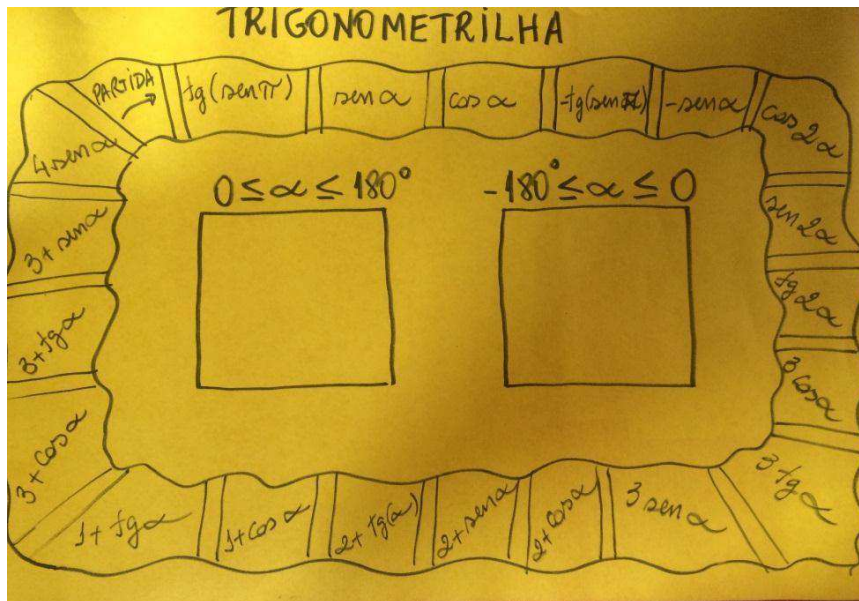 TRIGONOMETRILHA
PARTIDA
tg(senπ)
senα
cosα
-tg(senπ)
-senα
cos2α
sen2α
tg2α
3cosα
3tgα
3senα
2+cosα
2+senα
2+tg(α)
1+cosα
1+tgα
3+cosα
3+tgα
3+senα
4senα
0≤α≤180°
-180°≤α≤0